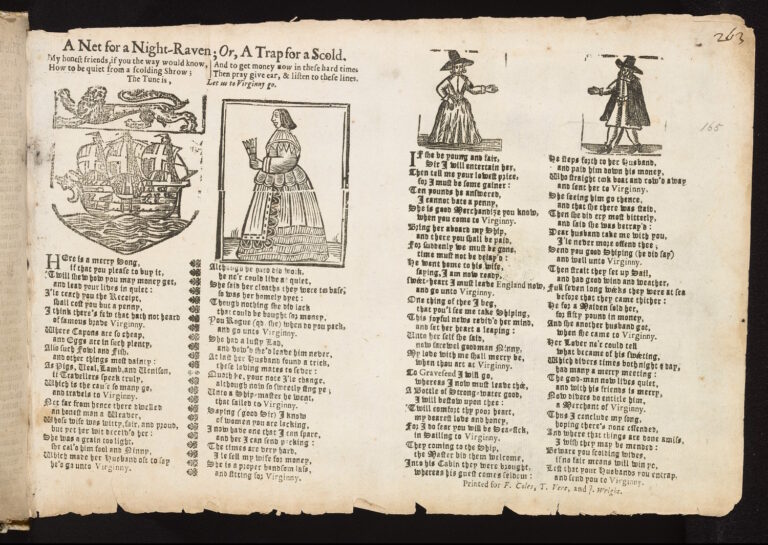 263
165
A Net for a Night-Raven; Or, A Trap for a Scold.
My honest friends, if you the way would know,
How to be quiet from a scolding Shrow;
And to get money now in these hard times
Then pray give ear, & listen to these lines.
The Tune is,
Let us to Virginny go.
HEre is a merry Song,
if that you please to buy it,
'Twill shew how you may money get,
and lead your lives in quiet:
I'le teach you the Receipt,
shall cost you but a penny,
I think there's few that hath not heard
of famous brave Virginny.
Where Capons are so cheap,
and Eggs are in such plenty,
Also such Fowl and Fish,
and other things most dainty:
As Pigs, Veal, Lamb, and Venison,
if Travellers speak truly,
Which is the cause so many go,
and travels to Virginny.
Not far from hence there dwelled
an honest man a Weaver,
Whose wife was witty, fair, and proud,
but yet her wit deceiv'd her:
She was a grain too light,
she cal'd him fool and Ninny,
Which made her Husband oft to say
he'd go unto Virginny.
Although he hard did work,
he ne'r could live at quiet,
She said her cloaths they were too base,
so was her homely dyet:
Though nothing she did lack
that could be bought for money,
You Rogue (qd. she) when do you pack,
and go unto Virginny.
She had a lusty Lad,
and vow'd she'd leave him never,
At last her Husband found a trick,
these loving mates to sever:
Quoth he, your note I'le change,
although now so sweetly sing ye;
Unto a Ship-master he went
that sailed to Virginny.
Saying (good Sir) I know
of women you are lacking,
I now have one that I can spare,
and her I can send packing:
The times are very hard,
I'le sell my wife for money,
She is a proper handsom lass,
and fitting for Virginny.
IF she be young and fair,
Sir I will entertain her,
Then tell me your lowest price,
for I must be some gainer:
Ten pounds he answered,
I cannot bate a penny,
She is good Merchandize you know,
when you come to Virginny.
Bring her aboard my Ship,
and there you shall be paid,
For suddenly we must be gone,
time must not be delay'd:
He went home to his wife,
saying, I am now ready,
Sweet-heart I must leave England now,
and go unto Virginny.
One thing of thee I beg,
that you'l see me take Shiping,
This joyful news reviv'd her mind,
and set her heart a leaping:
Unto her self she said,
now farewel goodman Ninny,
My love with me shall merry be,
when thou art at Virginny.
To Gravesend I will go,
whereas I now must leave thee,
A Bottle of Strong-water good,
I will bestow upon thee:
'Twill comfort thy poor heart,
my dearest love and honey,
For I do fear you will be Sea-sick,
in Sailing to Virginny.
They coming to the Ship,
the Master bid them welcome,
Into his Cabin they were brought,
whereas his guest comes seldom:
He steps forth to her Husband,
and paid him down his money,
Who straight took boat and row'd away
and sent her to Virginny.
She seeing him go thence,
and that she there was staid,
Then she did cry most bitterly,
and said she was betray'd:
Dear husband take me with you,
I'le never more offend thee;
Send you good Shiping (he did say)
and well unto Virginny.
Then strait they set up Sail,
and had good wind and weather,
Full seven long weeks they were at sea
before that they came thither:
He for a Maiden sold her,
for fifty pound in money,
And she another husband got,
when she came to Virginny.
Her Lover ne'r could tell
what became of his sweeting,
Which divers times both night & day,
had many a merry meeting:
The good-man now lives quiet,
and with his friends is merry,
Now divers do entitle him,
a Merchant of Virginny.
Thus I conclude my song,
hoping there's none offended,
And where that things are done amiss,
I wish they may be mended:
Beware you scolding wives,
if no fair means will win ye,
Lest that your Husbands you entrap,
and send you to Virginny.
Printed for F. Coles, T. Vere, and J. Wright.